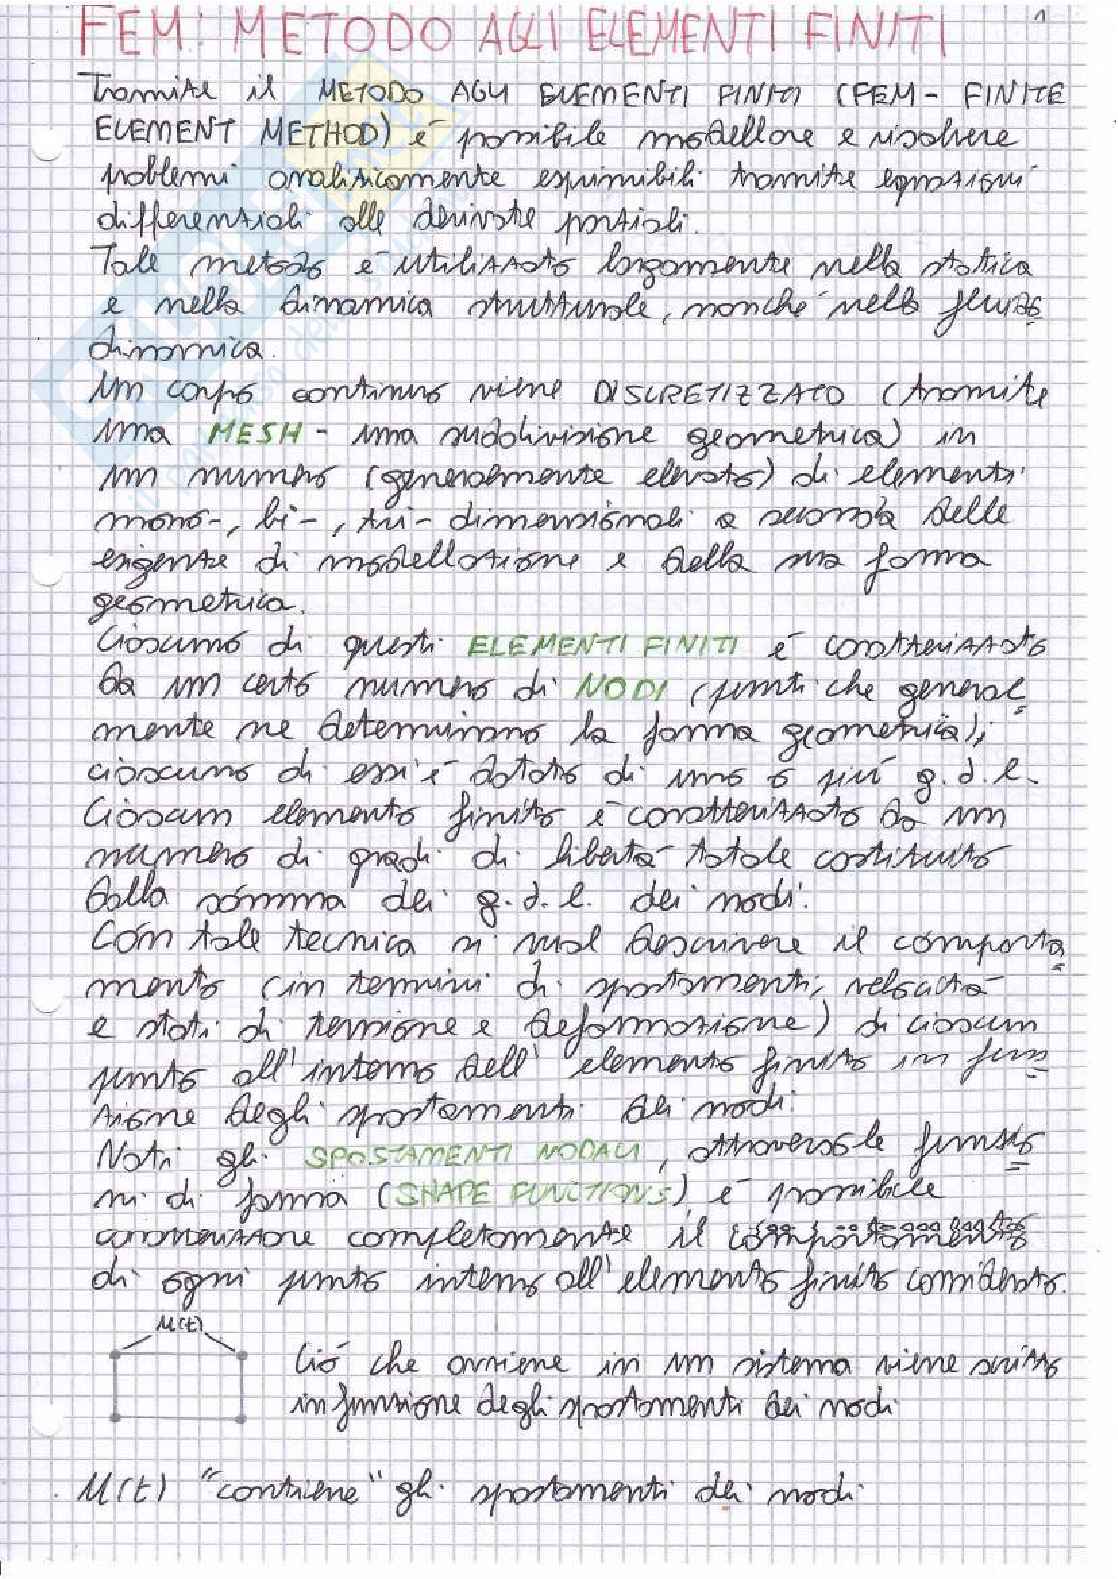 1
FEM: METODO AGLI ELEMENTI FINITI
Tramite il METODO AGLI ELEMENTI FINITI (FEM - FINITE
ELEMENT METHOD) è possibile modellare e risolvere
problemi analiticamente esprimibili tramite equazioni
differenziali alle derivate parziali.
Tale metodo è utilizzato largamente nella statica
e nella dinamica strutturale, nonché nella fluido
dinamica.
Un corpo continuo viene DISCRETIZZATO (tramite
una MESH - una suddivisione geometrica) in
un numero (generalmente elevato) di elementi
mono-, bi-, tri- dimensionali a seconda delle
esigenze di modellazione e della sua forma
geometrica.
Ciascuno di questi ELEMENTI FINITI è caratterizzato
da un certo numero di NODI (punti che general
mente ne determinano la forma geometrica);
ciascuno di essi è dotato di uno o più g.d.l.
Ciascun elemento finito è caratterizzato da un
numero di gradi di libertà totale costituito
dalla somma dei g.d.l. dei nodi.
Con tale tecnica si vuol descrivere il comporta
mento (in termini di spostamenti, velocità
e stati di tensione e deformazione) di ciascun
punto all'interno dell' elemento finito in fun
zione degli spostamenti dei nodi.
Noti gli SPOSTAMENTI NODALI, attraverso le funzio
ni di forma (SHAPE FUNCTIONS) è possibile
caratterizzare completamente il comportamento
di ogni punto interno all'elemento finito considerato.
u(t)
Ciò che avviene in un sistema viene scritto
in funzione degli spostamenti dei nodi
u(t) "contiene" gli spostamenti dei nodi